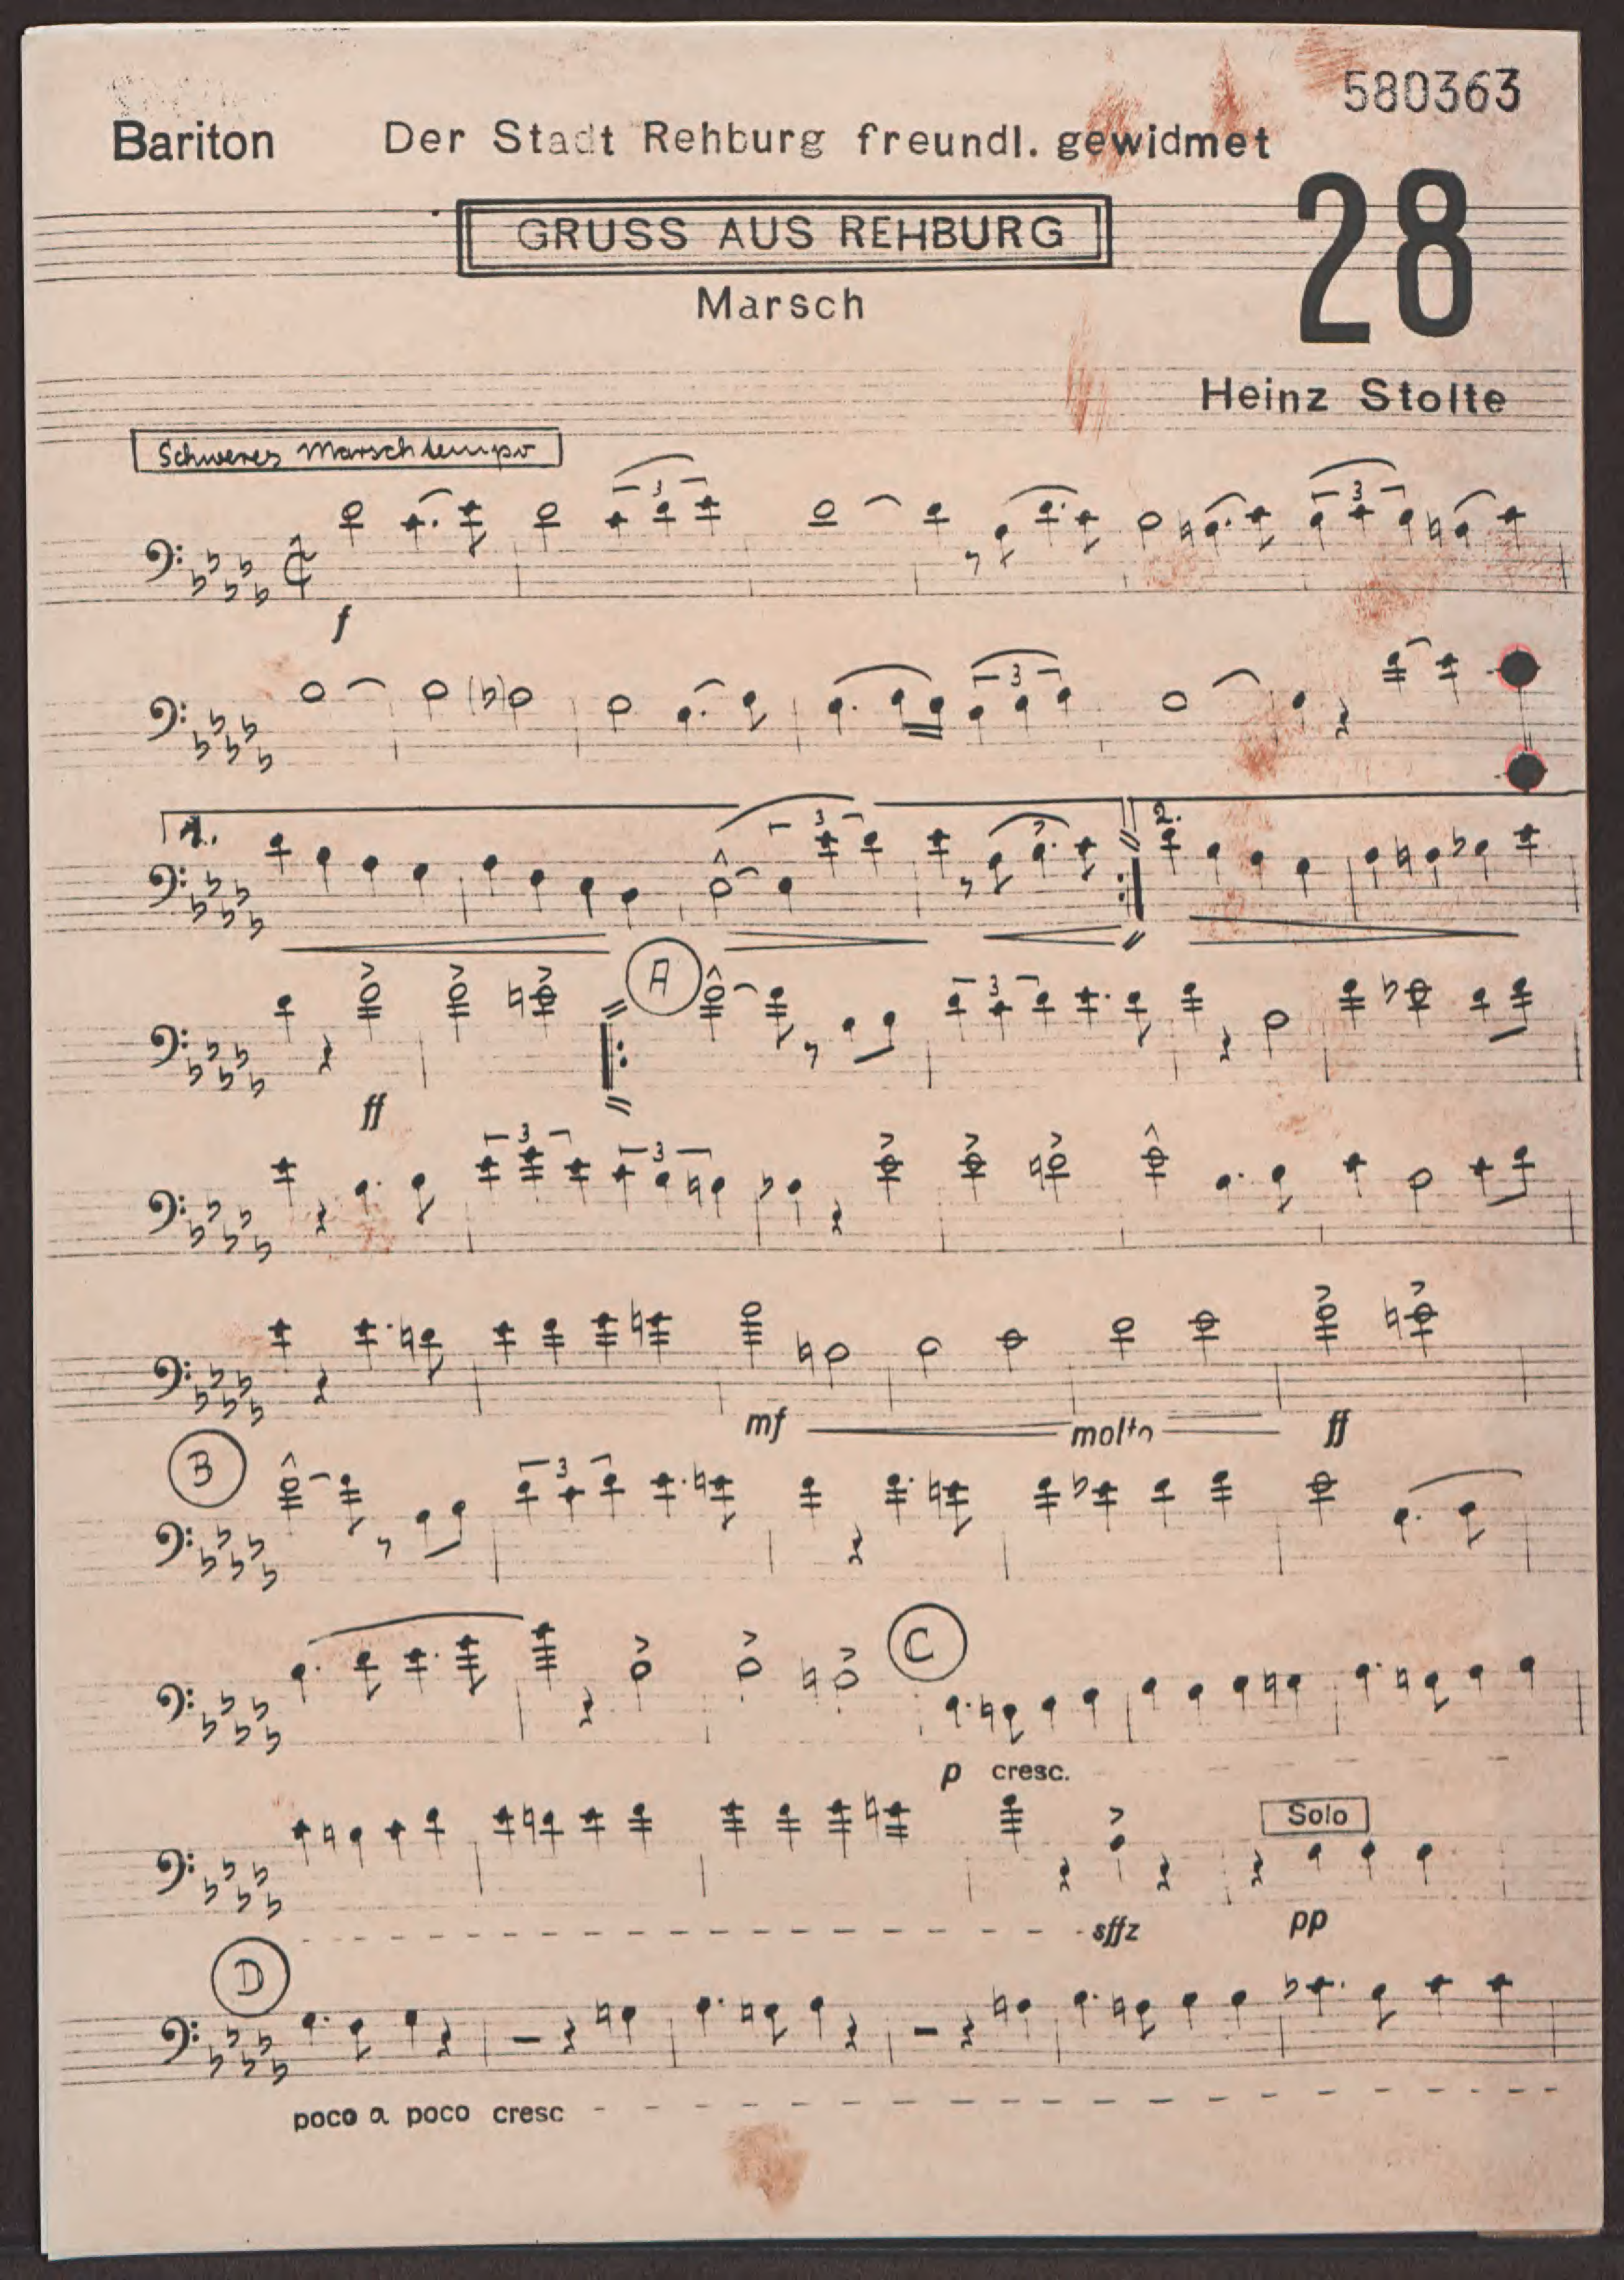 580363
Bariton Der Stadt Rehburg freundl. gewidmet
28
GRUSS AUS REHBURG
Marsch
Heinz Stolte
Schweres Marschtempo
3 3
f
3
1. 3 2.
A 3
ff
3 3
mf molto ff
B 3
C
p cresc.
Solo
sffz pp
D
poco a poco cresc